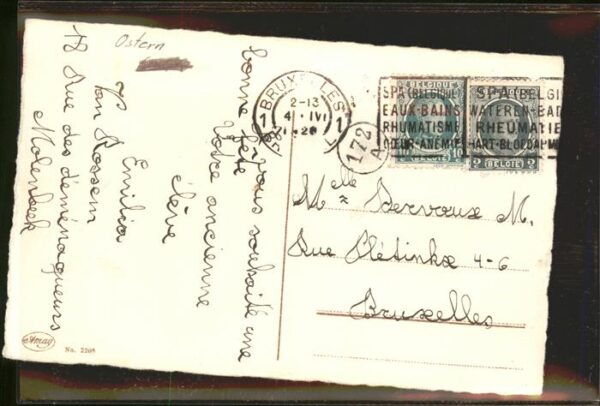 Ostern
Je vous souhaite une
bonne fête
Votre ancienne
élève
Emilia
Van Rossem
18 Rue des déménageurs
Molenbeek
BRUXELLES
1 1
2-13
4 · IV
172
A
SPA (BELGIQUE)
EAUX-BAINS
RHUMATISME
CŒUR-ANÉMIE
SPA (BELGI
WATEREN-BAD
RHEUMATIE
HART-BLOEDARM
BELGIQUE
10 10
BELGIË
2 BELGIË 2
Melle Dervoux M.
Rue Plétinkx 4-6
Bruxelles
No. 2208